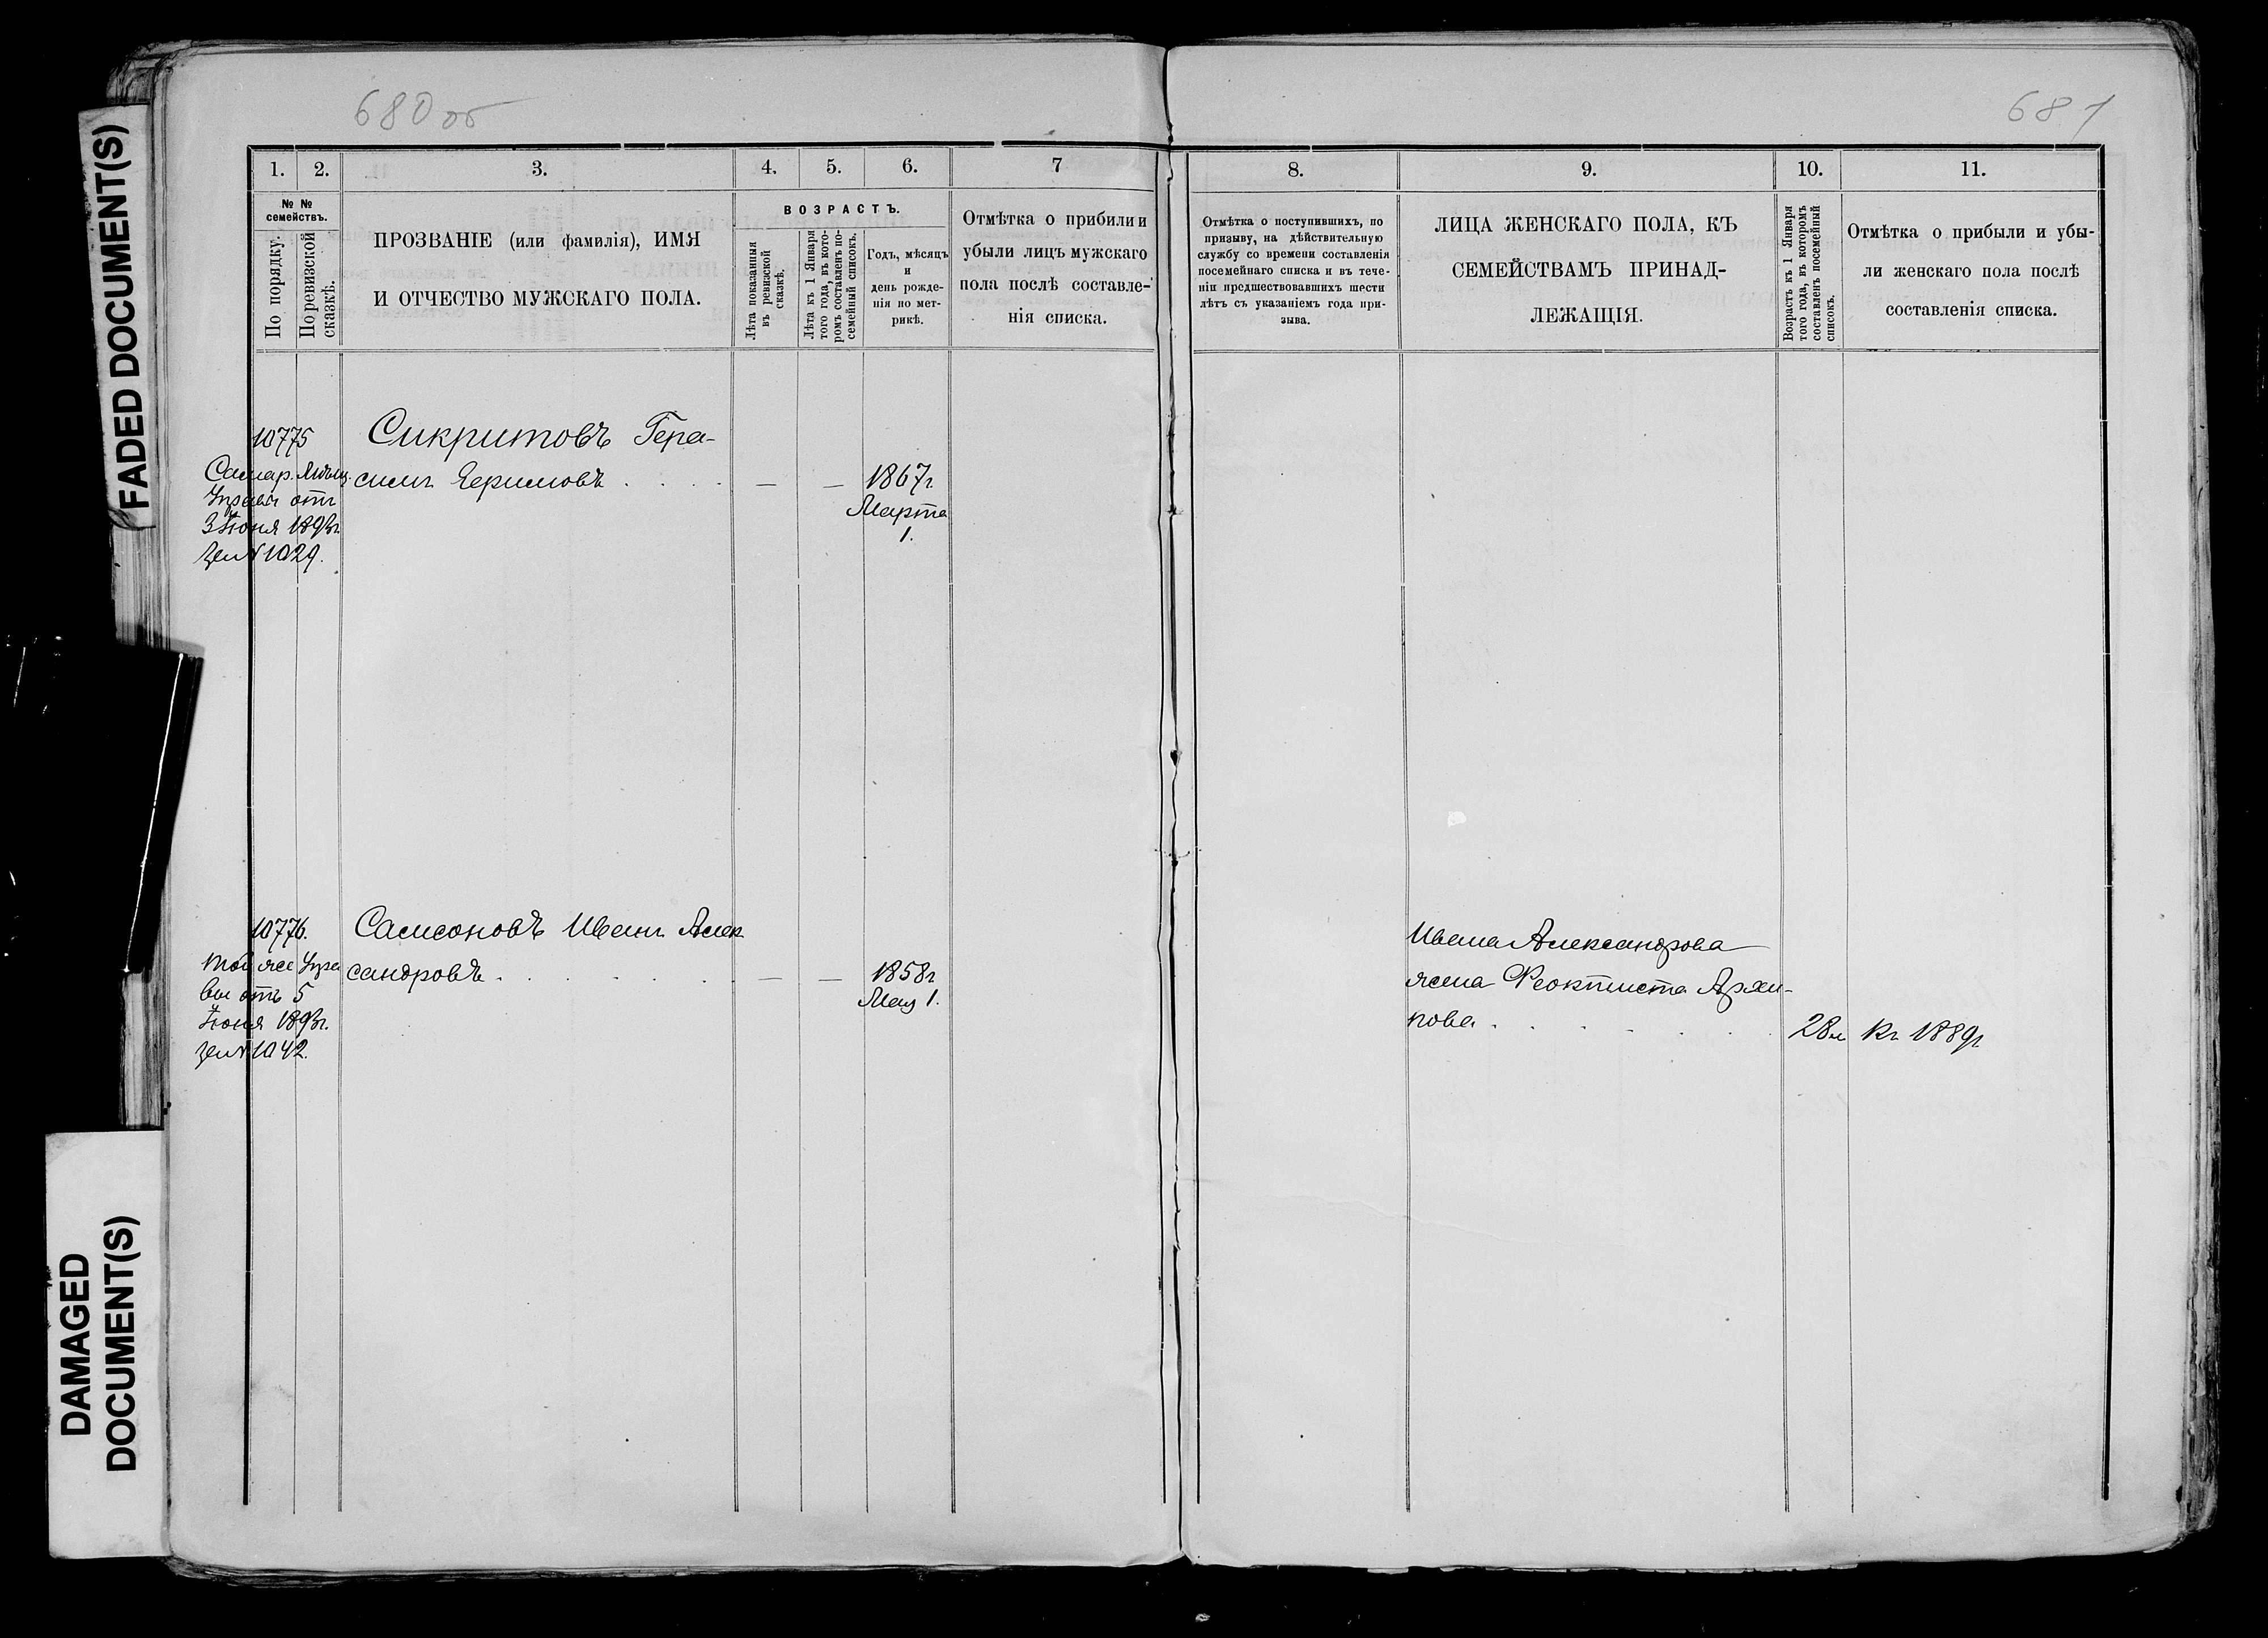 680 об
681
FADED DOCUMENT(S)
DAMAGED
DOCUMENT(S)
1. 2. 3. 4. 5. 6. 7
№ №
семействъ.
По порядку.
По ревизской
сказкѣ.
ПРОЗВАНІЕ (или фамилія), ИМЯ
И ОТЧЕСТВО МУЖСКАГО ПОЛА.
ВОЗРАСТЪ.
Лѣта показанныя
въ ревизской
сказкѣ.
Лѣта къ 1 Января
того года, въ кото-
ромъ составленъ по-
семейный списокъ.
Годъ, мѣсяцъ
и
день рожде-
нія по мет-
рикѣ.
Отмѣтка о прибыли и
убыли лицъ мужскаго
пола послѣ составле-
нія списка.
10775
Самар. Мѣщ.
Управы отъ
3 Іюня 1893г.
за № 1029.
Сикритовъ Гера-
симъ Ефимовъ . . . . — —
1867г.
Марта
1.
10776.
Той же Упра
вы отъ 5
Іюня 1893г.
за № 1042.
Самсоновъ Иванъ Алек
сандровъ . . . . . . — —
1858г
Мая 1.
8. 9. 10. 11.
Отмѣтка о поступившихъ, по
призыву, на дѣйствительную
службу со времени составленія
посемейнаго списка и въ тече-
ніи предшествовавшихъ шести
лѣтъ съ указаніемъ года при-
зыва.
ЛИЦА ЖЕНСКАГО ПОЛА, КЪ
СЕМЕЙСТВАМЪ ПРИНАД-
ЛЕЖАЩІЯ.
Возрастъ къ 1 Января
того года, въ которомъ
составленъ посемейный
списокъ.
Отмѣтка о прибыли и убы-
ли женскаго пола послѣ
составленія списка.
Ивана Александрова
жена Феоктиста Архи-
пова . . . . . . . 28л къ 1889г.